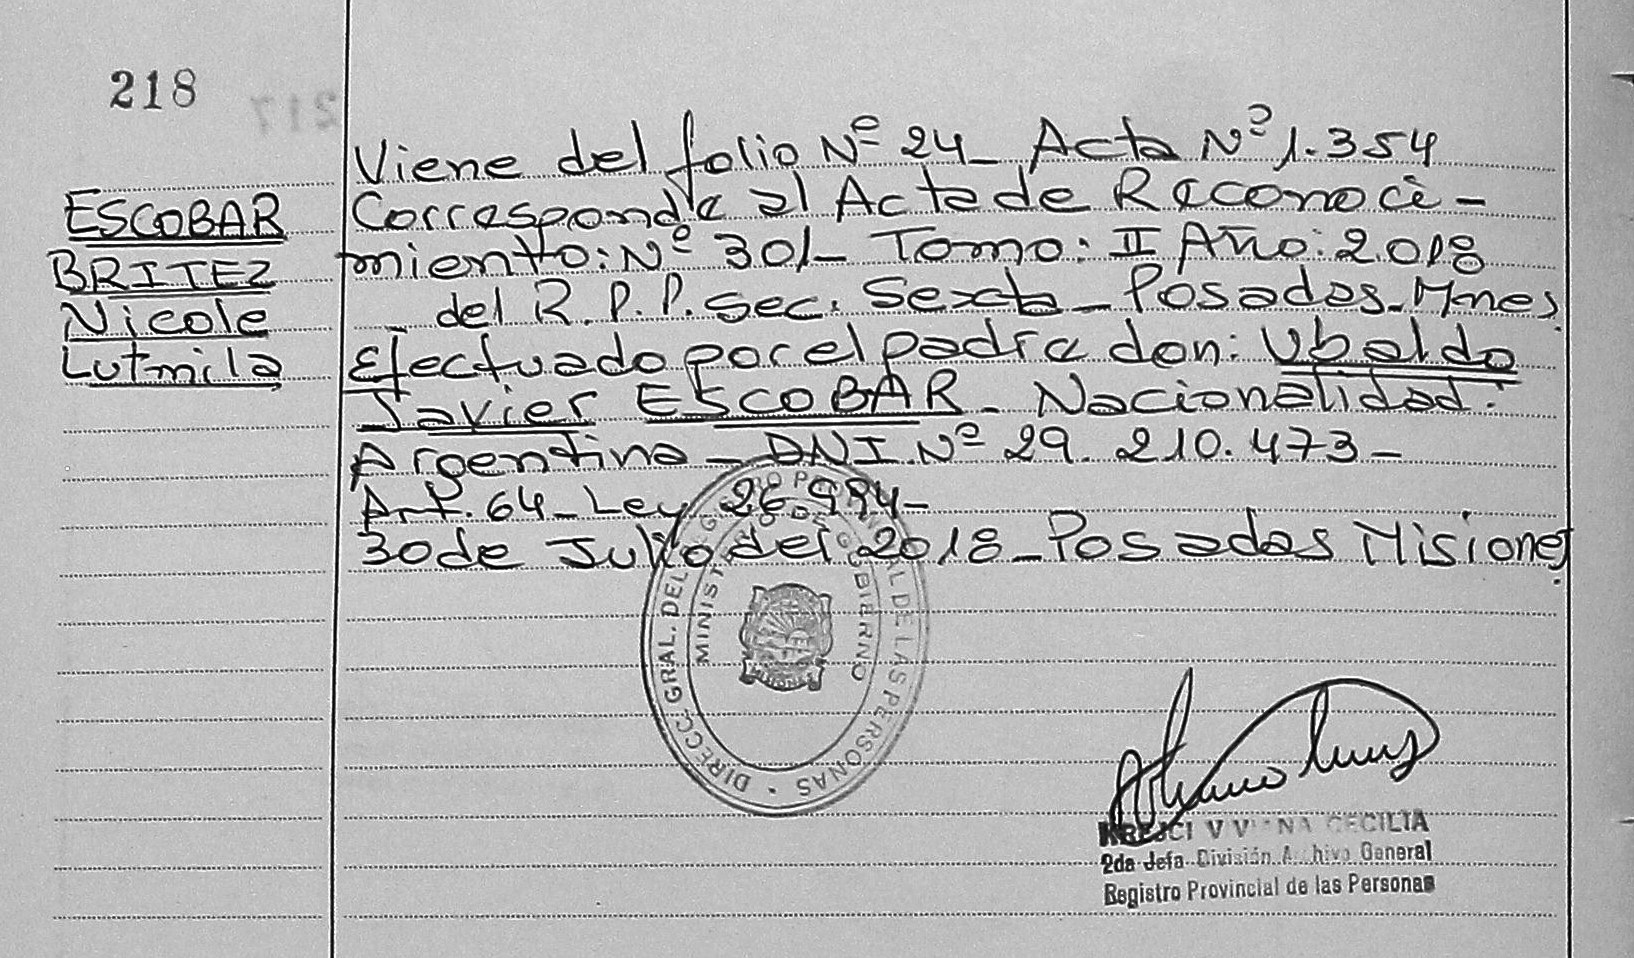 218
217
ESCOBAR
BRITEZ
Nicole
Lutmila
Viene del folio Nº 24_ Acta Nº 1.354
Corresponde al Acta de Reconoci-
miento: Nº 301_ Tomo: II Año: 2.018
_ del R.P.P. Sec. Sexta_ Posadas_ Mnes.
Efectuado por el padre don: Ubaldo
Javier ESCOBAR_ Nacionalidad:
Argentina_ DNI. Nº 29.210.473-
Art. 64_ Ley 26.994-
30 de Julio del 2018_ Posadas Misiones.
DIRECC. GRAL. DEL REGISTRO PROVINCIAL DE LAS PERSONAS
MINISTERIO DE GOBIERNO
MISIONES
KREJCI VIVIANA CECILIA
2da Jefa División Archivo General
Registro Provincial de las Personas